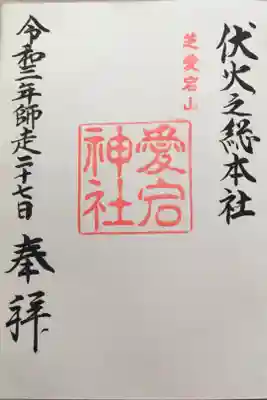 伏火之総本社
芝愛宕山
愛宕
神社
奉拝
令和三年師走二十七日